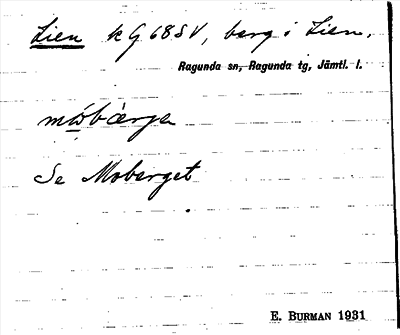 Lien kG68SV, berg i Lien.
Ragunda sn, Ragunda tg, Jämtl. l.
móbærje
Se Moberget
E. BURMAN 1931